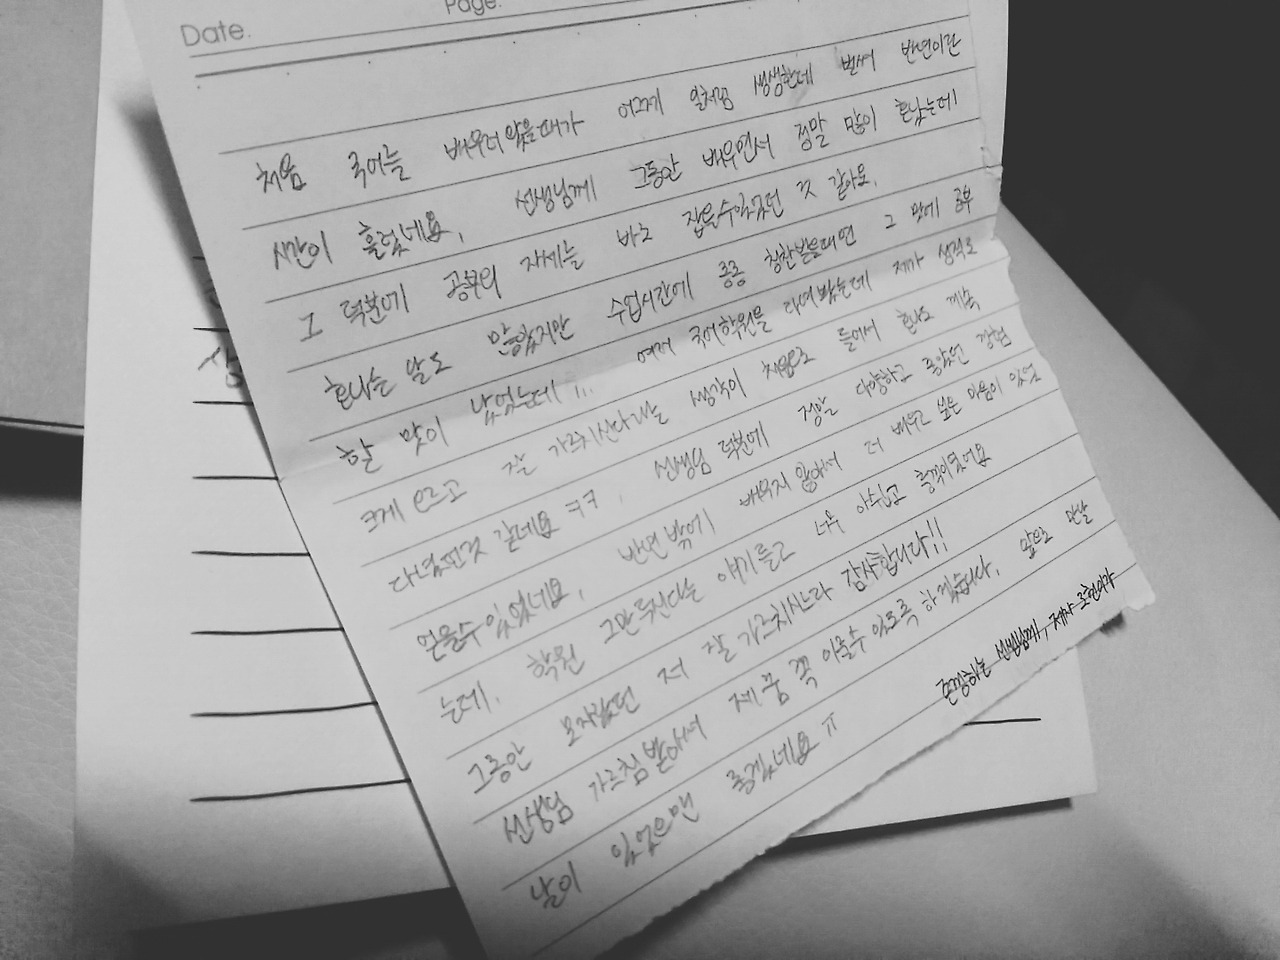 Date.
Page.
처음 국어를 배우러 왔을때가 어그제 일처럼 생생한데 벌써 반년이란
시간이 흘렀네요. 선생님께 그동안 배우면서 정말 많이 혼났는데
그 덕분에 공부의 자세를 바로 잡을수있었던 것 같아요.
혼나는 날도 많았지만 수업시간에 종종 칭찬받을때면 그 맛에 공부
할 맛이 났었는데!... 여러 국어학원을 다녀봤는데 제가 성적도
크게 오르고 잘 가르치신다라는 생각이 처음으로 들어서 혼나도 계속
다녔던것 같네요 ㅋㅋ. 선생님 덕분에 정말 다양하고 좋았던 경험
얻을수 있었네요. 반년밖에 배우지 않아서 더 배우고 싶은 마음이 있었
는데. 학원 그만두신다는 얘기듣고 너무 아쉽고 충격이였어요
그동안 모자랐던 저 잘 가르치시느라 감사합니다!!
선생님 가르침받아서 제 꿈 꼭 이룰수 있도록 하겠습니다. 앞으로 만날
날이 있었으면 좋겠네요 ㅠ
존경하는 선생님께, 제자